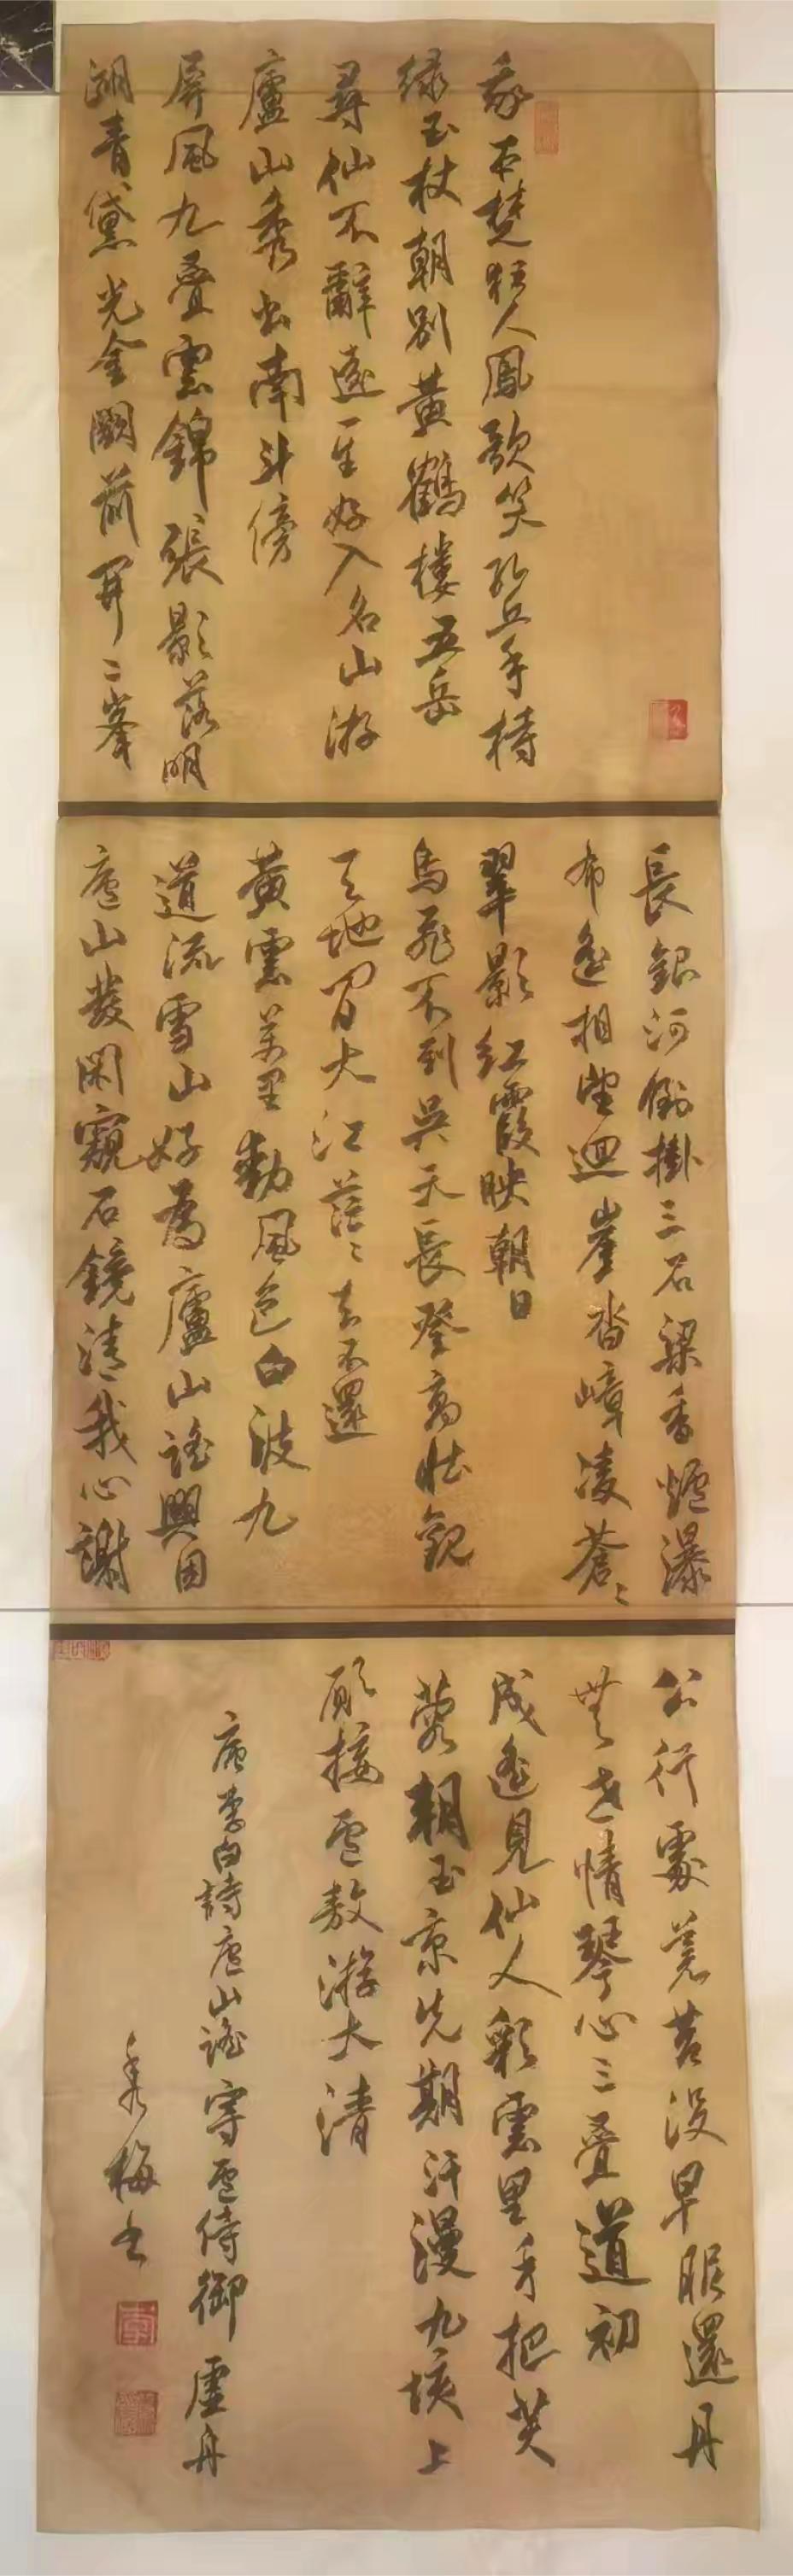 我本楚狂人鳳歌笑孔丘手持
绿玉杖朝别黄鶴樓五岳
尋仙不辭遠一生好入名山游
廬山秀出南斗傍
屏風九叠雲錦張影落明
湖青黛光金闕前開二峯
長銀河倒掛三石梁香爐瀑
布遥相望迴崖沓嶂凌蒼〻
翠影紅霞映朝日
鳥飛不到吳天長登高壯觀
天地間大江茫〻去不還
黄雲萬里動風色白波九
道流雪山好為廬山謡興因
廬山發閑窺石鏡清我心謝
公行處蒼苔没早服還丹
無世情琴心三叠道初
成遥見仙人彩雲里手把芙
蓉朝玉京先期汗漫九垓上
願接盧敖游大清
唐李白詩廬山謡寄盧侍御虚舟
秀梅書